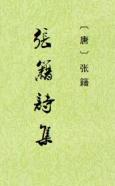 張籍詩集
〔唐〕张籍